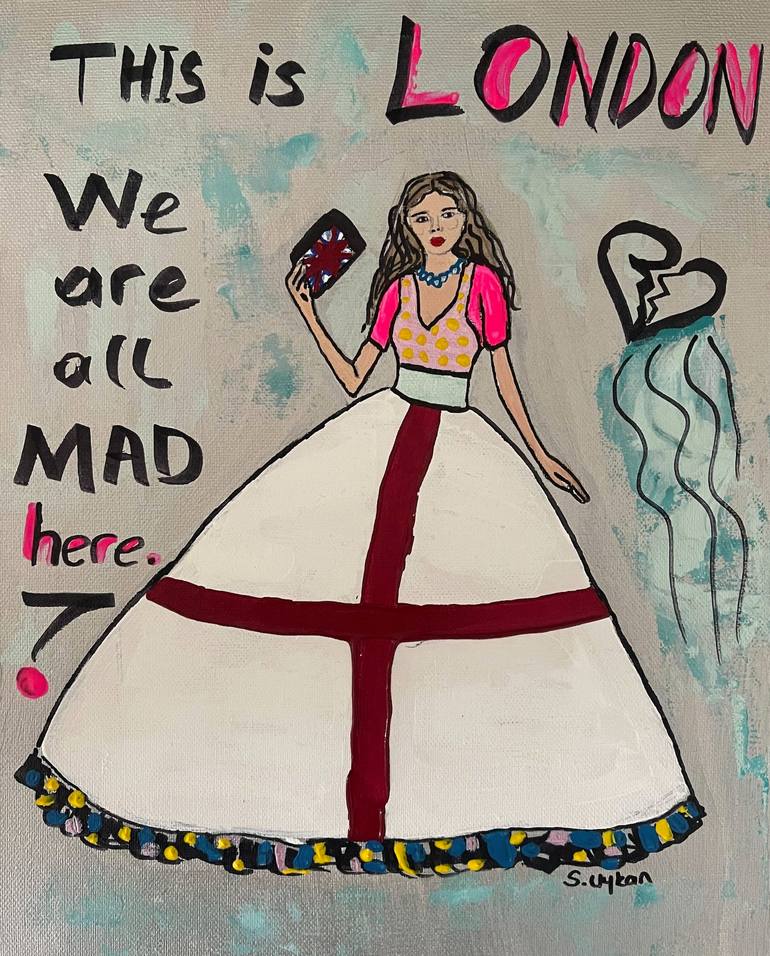 THIS is LONDON
We
are
all
MAD
here.
?
S. Uykan